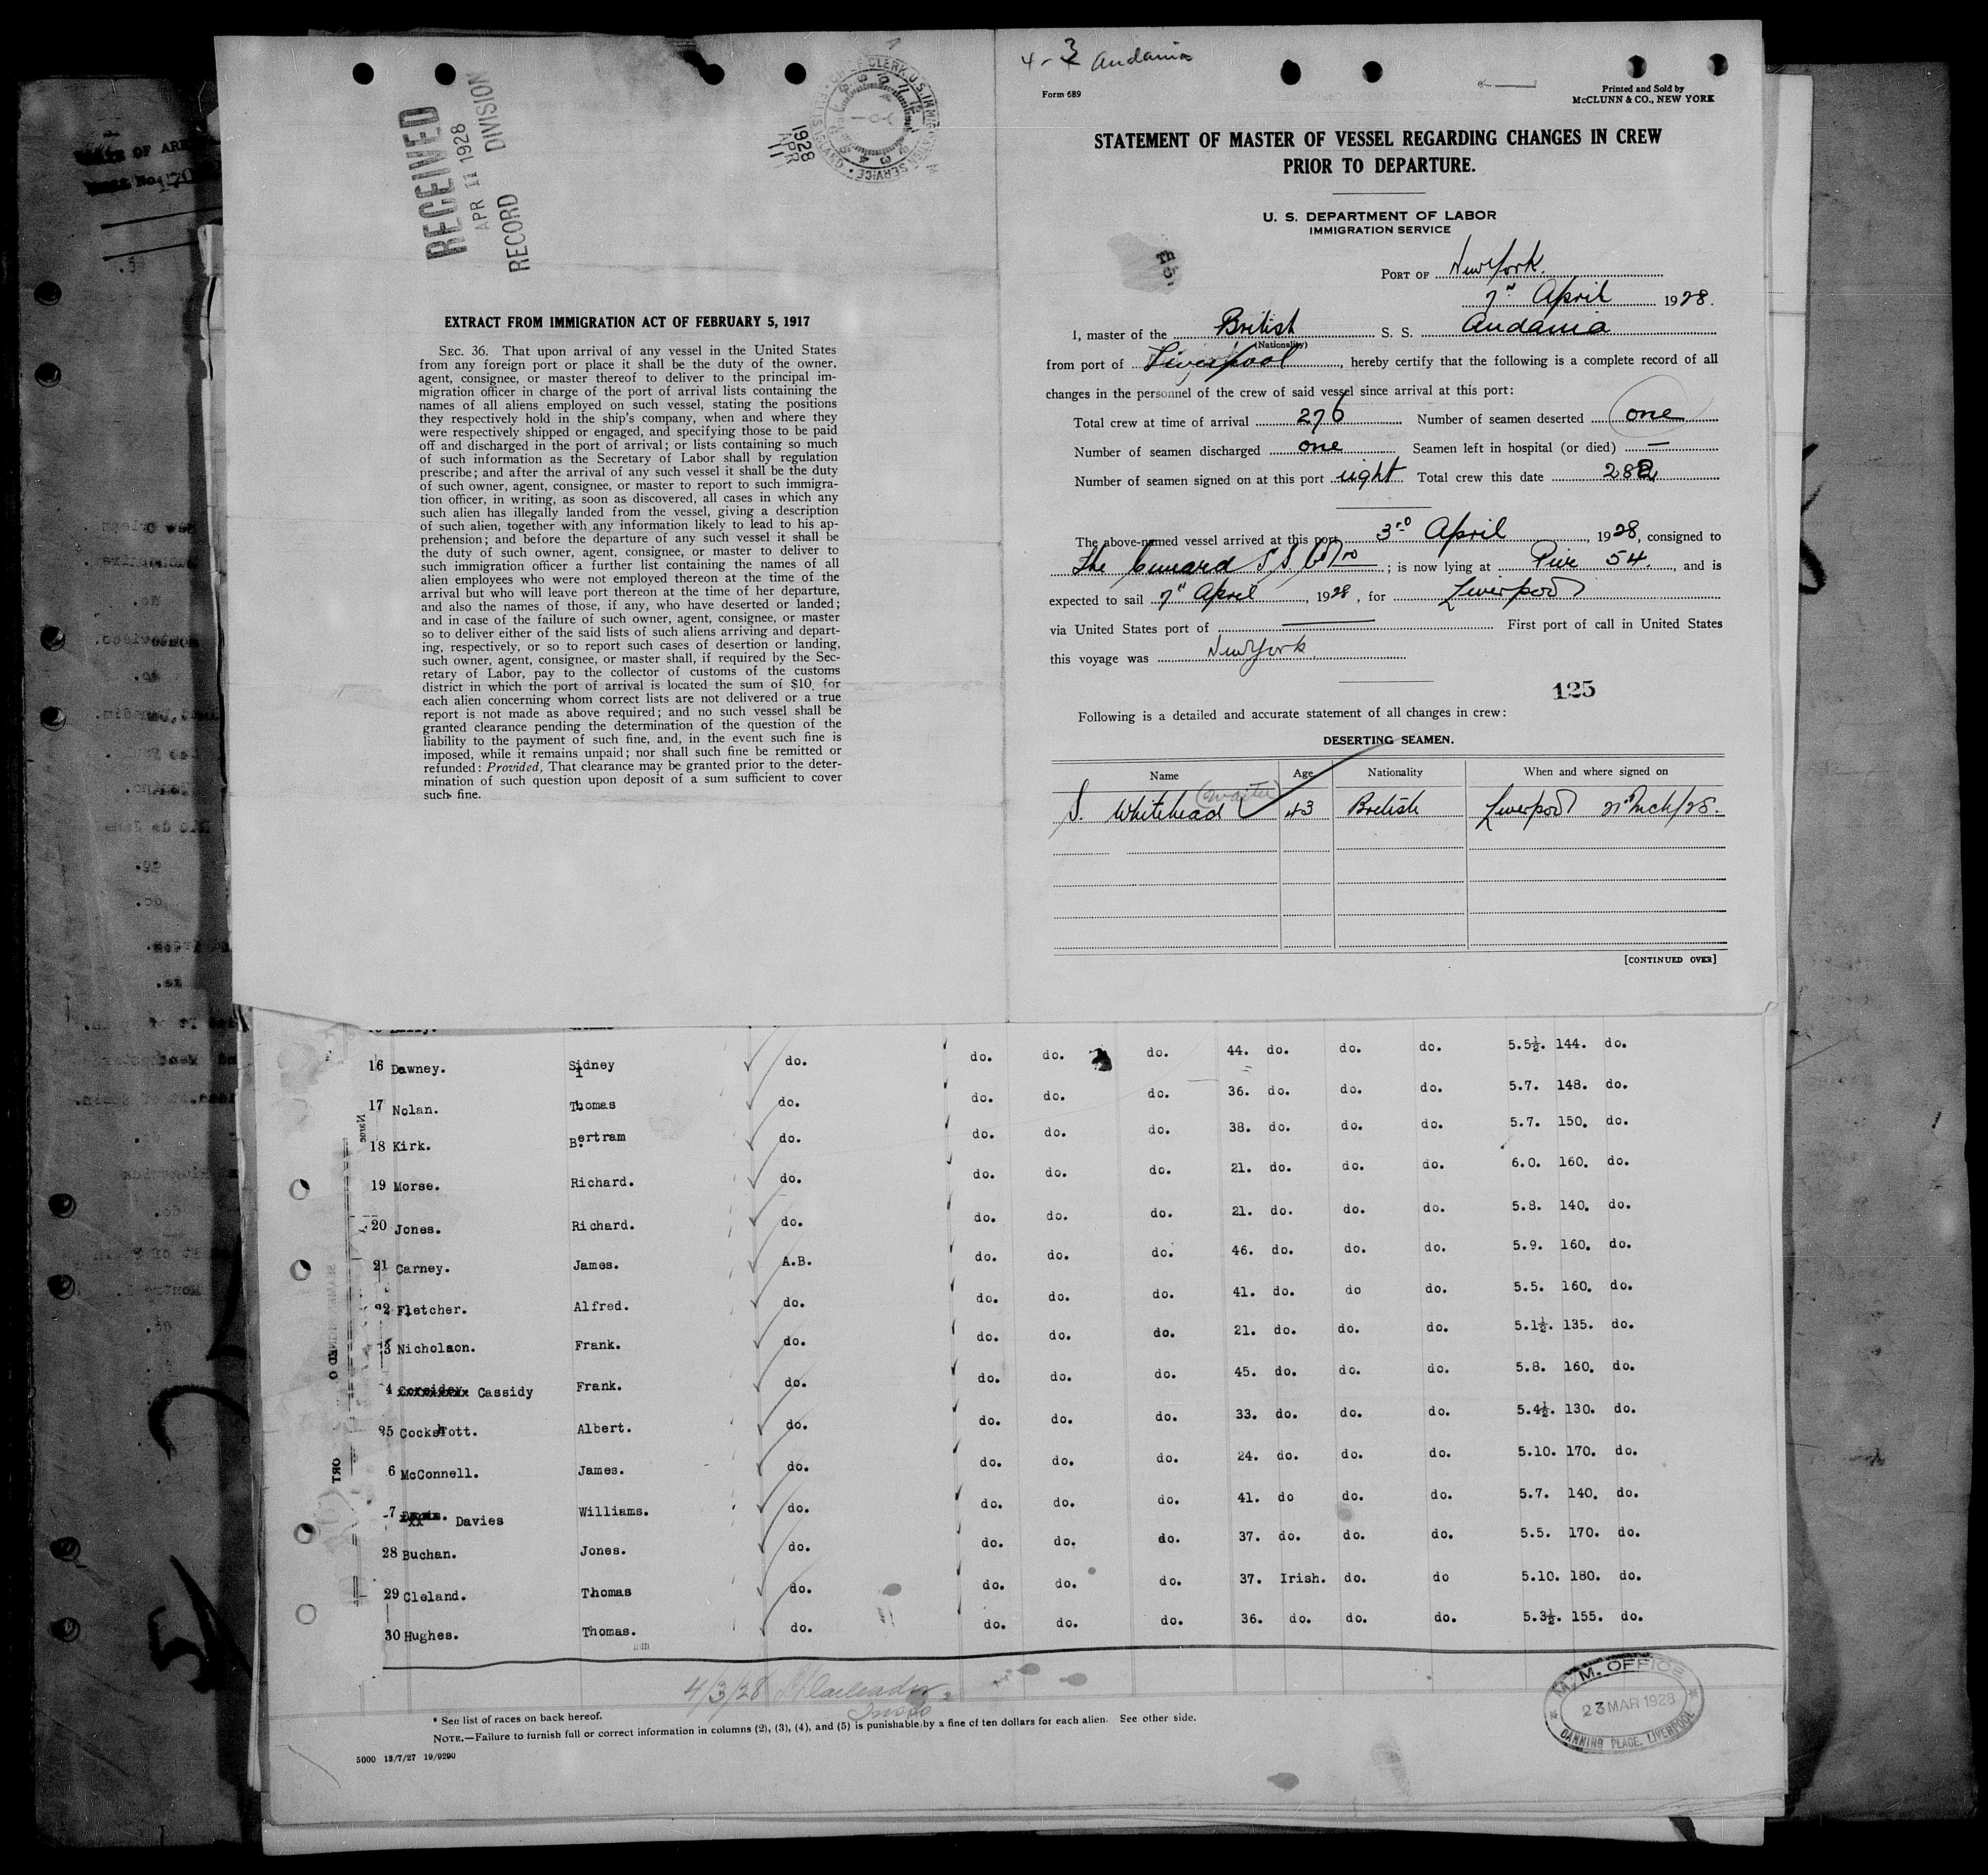 RECEIVED
APR 11 1928
RECORD DIVISION
1928
APR
11
EXTRACT FROM IMMIGRATION ACT OF FEBRUARY 5, 1917
SEC. 36. That upon arrival of any vessel in the United States
from any foreign port or place it shall be the duty of the owner,
agent, consignee, or master thereof to deliver to the principal im-
migration officer in charge of the port of arrival lists containing the
names of all aliens employed on such vessel, stating the positions
they respectively hold in the ship's company, when and where they
were respectively shipped or engaged, and specifying those to be paid
off and discharged in the port of arrival; or lists containing so much
of such information as the Secretary of Labor shall by regulation
prescribe; and after the arrival of any such vessel it shall be the duty
of such owner, agent, consignee, or master to report to such immigra-
tion officer, in writing, as soon as discovered, all cases in which any
such alien has illegally landed from the vessel, giving a description
of such alien, together with any information likely to lead to his ap-
prehension; and before the departure of any such vessel it shall be
the duty of such owner, agent, consignee, or master to deliver to
such immigration officer a further list containing the names of all
alien employees who were not employed thereon at the time of the
arrival but who will leave port thereon at the time of her departure,
and also the names of those, if any, who have deserted or landed;
and in case of the failure of such owner, agent, consignee, or master
so to deliver either of the said lists of such aliens arriving and depart-
ing, respectively, or so to report such cases of desertion or landing,
such owner, agent, consignee, or master shall, if required by the Sec-
retary of Labor, pay to the collector of customs of the customs
district in which the port of arrival is located the sum of $10 for
each alien concerning whom correct lists are not delivered or a true
report is not made as above required; and no such vessel shall be
granted clearance pending the determination of the question of the
liability to the payment of such fine, and, in the event such fine is
imposed, while it remains unpaid; nor shall such fine be remitted or
refunded: Provided, That clearance may be granted prior to the deter-
mination of such question upon deposit of a sum sufficient to cover
such fine.
4-3 Andania
Form 689
Printed and Sold by
McCLUNN & CO., NEW YORK
STATEMENT OF MASTER OF VESSEL REGARDING CHANGES IN CREW
PRIOR TO DEPARTURE.
U. S. DEPARTMENT OF LABOR
IMMIGRATION SERVICE
PORT OF New York.
7th April 1928.
I, master of the British S. S. Andania
(Nationality)
from port of Liverpool, hereby certify that the following is a complete record of all
changes in the personnel of the crew of said vessel since arrival at this port:
Total crew at time of arrival 276 Number of seamen deserted one
Number of seamen discharged one Seamen left in hospital (or died) —
Number of seamen signed on at this port eight Total crew this date 282
The above-named vessel arrived at this port 3rd April, 1928, consigned to
The Cunard S.S. Co; is now lying at Pier 54., and is
expected to sail 7th April, 1928, for Liverpool
via United States port of — First port of call in United States
this voyage was New York.
125
Following is a detailed and accurate statement of all changes in crew:
DESERTING SEAMEN.
Name Age Nationality When and where signed on
S. Whitehead (waiter) 43 British Liverpool 21st Mch/28.
[CONTINUED OVER]
16 Dawney. Sidney do. do. do. do. 44. do. do. do. 5.5½. 144. do.
17 Nolan. Thomas do. do. do. do. 36. do. do. do. 5.7. 148. do.
18 Kirk. Bertram do. do. do. do. 38. do. do. do. 5.7. 150. do.
19 Morse. Richard. do. do. do. do. 21. do. do. do. 6.0. 160. do.
20 Jones. Richard. do. do. do. do. 21. do. do. do. 5.8. 140. do.
21 Carney. James. A.B. do. do. do. 46. do. do. do. 5.9. 160. do.
22 Fletcher. Alfred. do. do. do. do. 41. do. do do. 5.5. 160. do.
3 Nicholson. Frank. do. do. do. do. 21. do. do. do. 5.1½. 135. do.
4 Cassidy Frank. do. do. do. do. 45. do. do. do. 5.8. 160. do.
25 Cockshott. Albert. do. do. do. do. 33. do. do. do. 5.4½. 130. do.
6 McConnell. James. do. do. do. do. 24. do. do. do. 5.10. 170. do.
7 Davies Williams. do. do. do. do. 41. do do. do. 5.7. 140. do.
28 Buchan. Jones. do. do. do. do. 37. do. do. do. 5.5. 170. do.
29 Cleland. Thomas do. do. do. do. 37. Irish. do. do 5.10. 180. do.
30 Hughes. Thomas. do. do. do. do. 36. do. do. do. 5.3½. 155. do.
4/3/28
* See list of races on back hereof.
NOTE.—Failure to furnish full or correct information in columns (2), (3), (4), and (5) is punishable by a fine of ten dollars for each alien. See other side.
5000 13/7/27 19/9290
M. M. OFFICE
23 MAR 1928
CANNING PLACE, LIVERPOOL